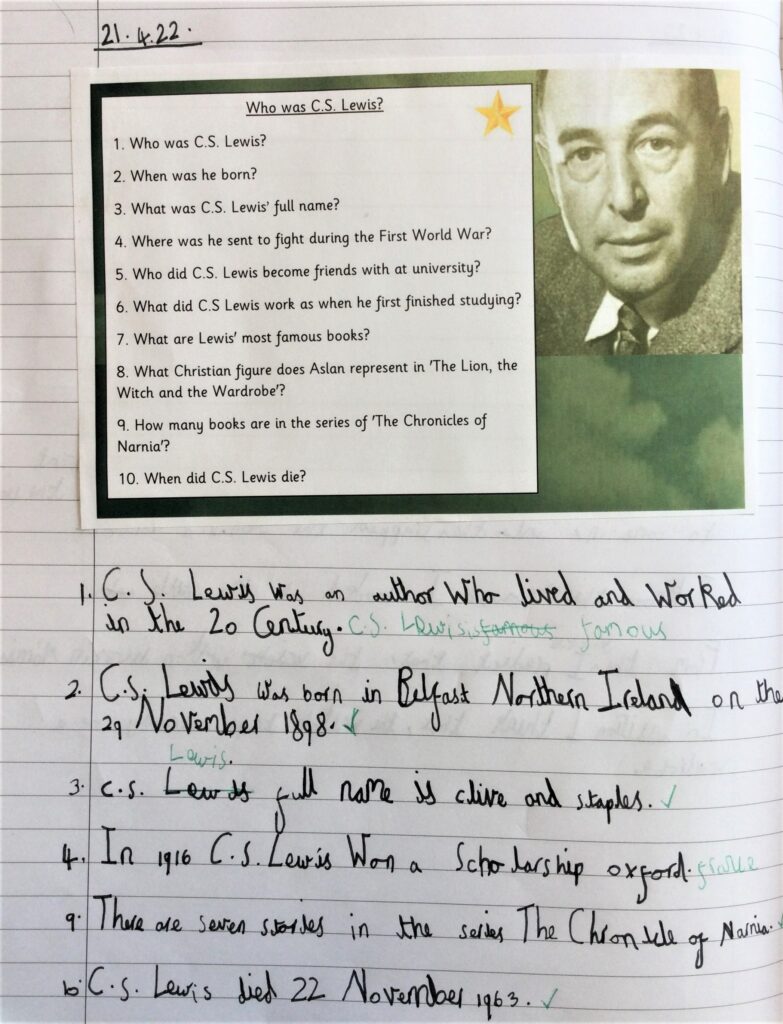 21.4.22.
Who was C.S. Lewis?
1. Who was C.S. Lewis?
2. When was he born?
3. What was C.S. Lewis' full name?
4. Where was he sent to fight during the First World War?
5. Who did C.S. Lewis become friends with at university?
6. What did C.S Lewis work as when he first finished studying?
7. What are Lewis' most famous books?
8. What Christian figure does Aslan represent in 'The Lion, the
Witch and the Wardrobe'?
9. How many books are in the series of 'The Chronicles of
Narnia'?
10. When did C.S. Lewis die?
1. C.S. Lewis was an author who lived and worked
in the 20 Century. C.S. Lewis is famous famous
2. C.S. Lewis was born in Belfast Northern Ireland on the
29 November 1898.
Lewis.
3. C.S. full name is clive and staples.
4. In 1916 C.S. Lewis Won a Scholarship oxford.
9. There are seven stories in the series The Chronicle of Narnia.
10 C.S. Lewis died 22 November 1963.